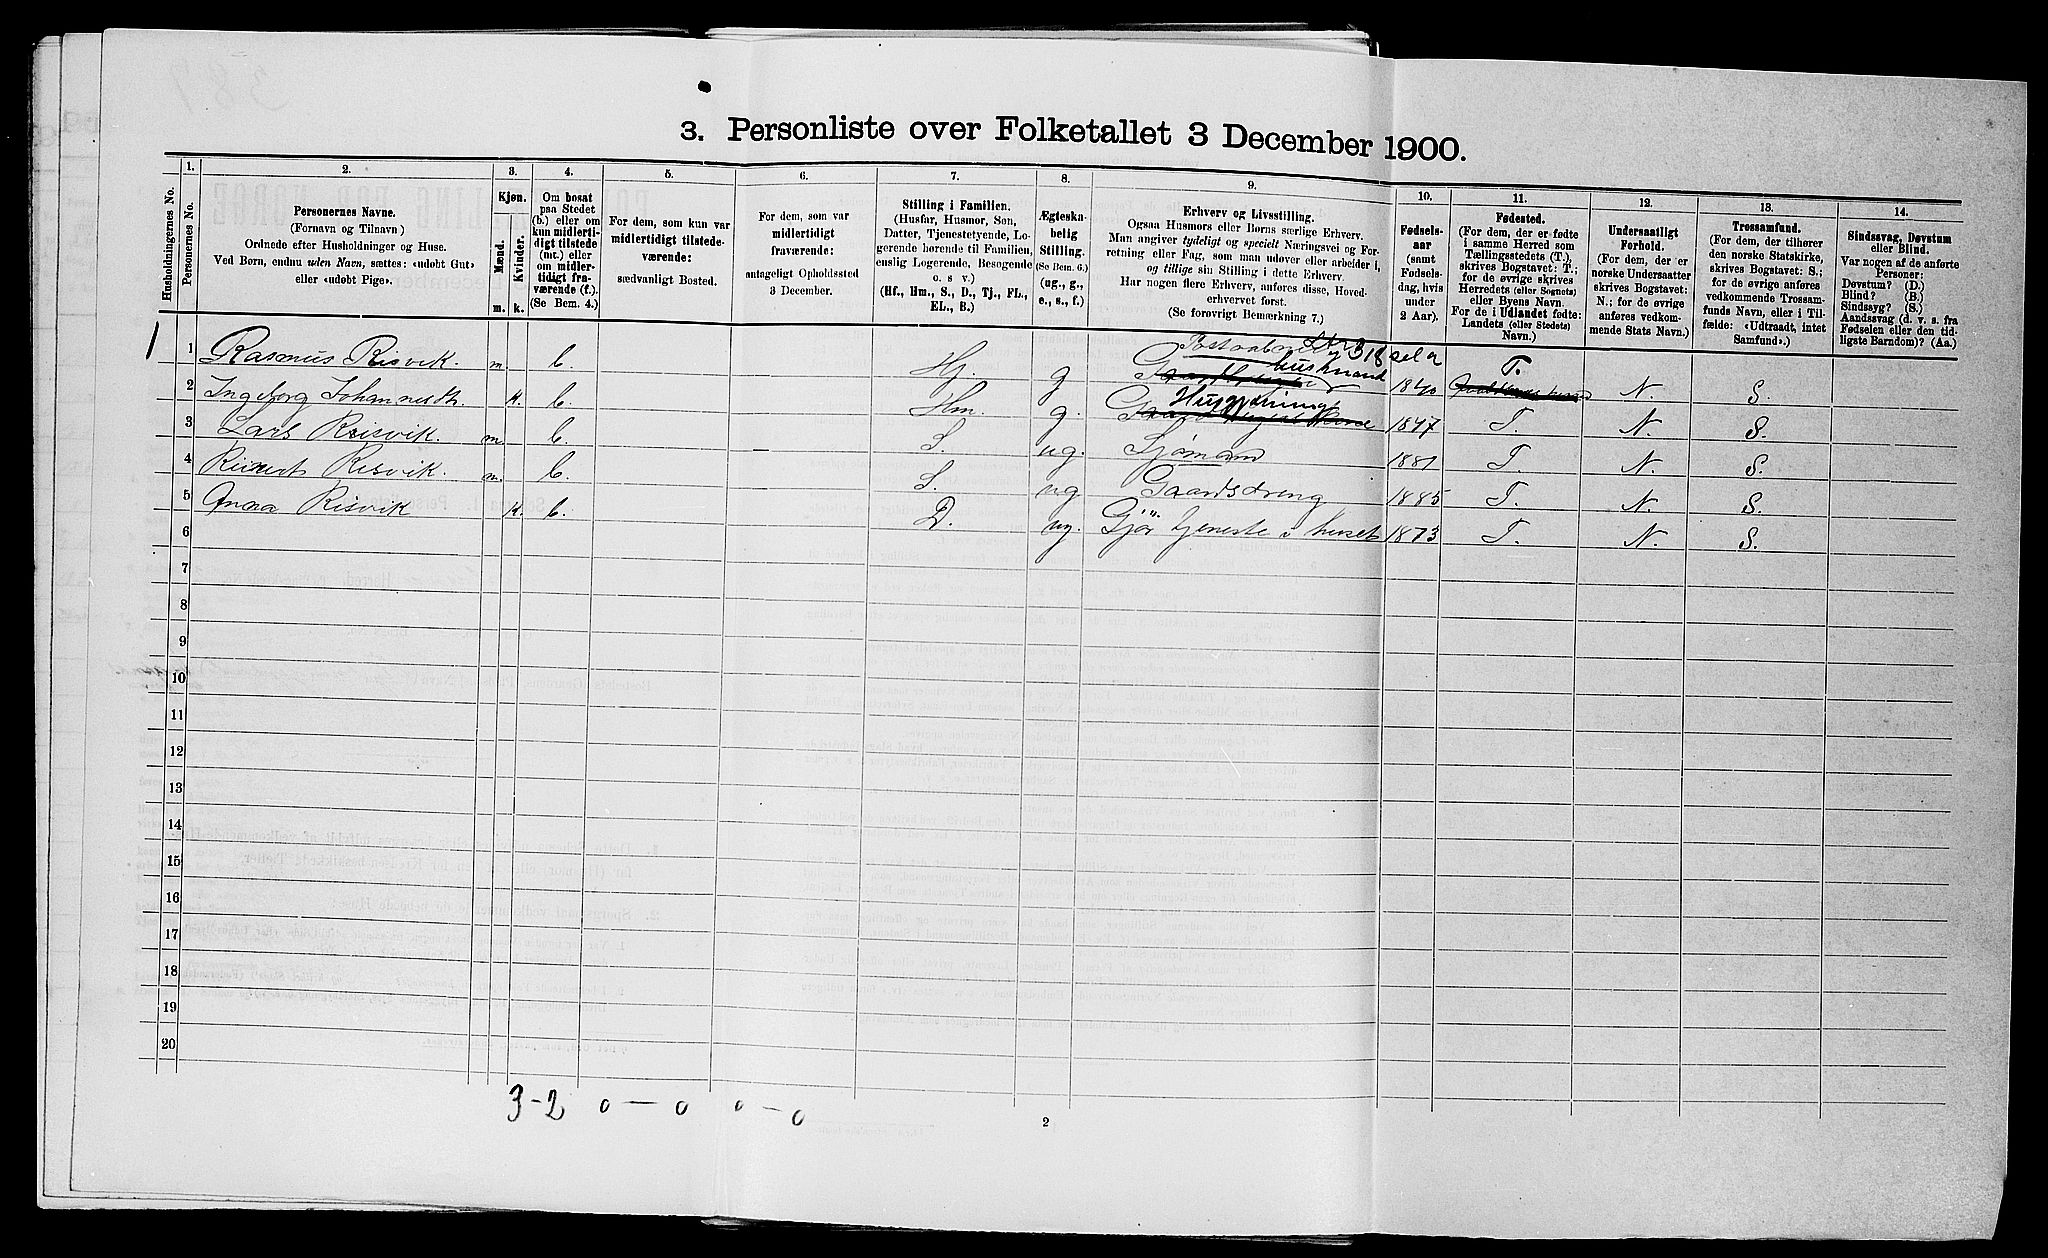 3. Personliste over Folketallet 3 December 1900.
Husholdningernes No.
1.
Personernes No.
2.
Personernes Navne.
(Fornavn og Tilnavn)
Ordnede efter Husholdninger og Huse.
Ved Børn, endnu uden Navn, sættes: «udøbt Gut»
eller «udøbt Pige».
3.
Kjøn.
Mænd.
Kvinder.
m.
k.
4.
Om bosat
paa Stedet
(b.) eller om
kun midlerti-
digt tilstede
(mt.) eller
om midler-
tidigt fra-
værende (f.).
(Se Bem. 4.)
5.
For dem, som kun var
midlertidigt tilstede-
værende:
sædvanligt Bosted.
6.
For dem, som var
midlertidigt
fraværende:
antageligt Opholdssted
3 December.
7.
Stilling i Familien.
(Husfar, Husmor, Søn,
Datter, Tjenestetyende, Lo-
gerende hørende til Familien,
enslig Logerende, Besøgende
o. s. v.)
(Hf., Hm., S., D., Tj., FL.,
EL., B.)
8.
Ægteska-
belig
Stilling.
(Se Bem. 6.)
(ug., g.,
e., s., f.)
9.
Erhverv og Livsstilling.
Ogsaa Husmors eller Børns særlige Erhverv.
Man angiver tydeligt og specielt Næringsvei og For-
retning eller Fag, som man udøver eller arbeider i,
og tillige sin Stilling i dette Erhverv.
Har nogen flere Erhverv, anføres disse, Hoved-
erhvervet først.
(Se forøvrigt Bemærkning 7.)
10.
Fødsels-
aar
(samt
Fødsels-
dag, hvis
under
2 Aar).
11.
Fødested.
(For dem, der er fødte
i samme Herred som
Tællingsstedets (T.),
skrives Bogstavet: T.;
for de øvrige skrives
Herredets (eller Sognets)
eller Byens Navn.
For de i Udlandet fødte:
Landets (eller Stedets)
Navn.)
12.
Undersaatligt
Forhold.
(For dem, der er
norske Undersaatter
skrives Bogstavet:
N.; for de øvrige
anføres vedkom-
mende Stats Navn.)
13.
Trossamfund.
(For dem, der tilhører
den norske Statskirke,
skrives Bogstavet: S.;
for de øvrige anføres
vedkommende Trossam-
funds Navn, eller i Til-
fælde: «Udtraadt, intet
Samfund».)
14.
Sindssvag, Døvstum
eller Blind.
Var nogen af de anførte
Personer:
Døvstum? (D.)
Blind? (B.)
Sindssyg? (S.)
Aandssvag (d. v. s. fra
Fødselen eller den tid-
ligste Barndom)? (Aa.)
1 1 Rasmus Risvik. m. b. Hf. g Postaabner husmand 1840 T. N. S.
2 Ingeborg Johannesdt. k. b. Hm. g. Husgjerning 1847 T. N. S.
3 Lars Risvik. m b. S. ug. Sjømand 1881 T. N. S.
4 Risvik. m. b. S. ug Gaardsdreng 1885 T. N. S.
5 Anna Risvik k. b. D. ug. Gjør tjeneste i huset 1873 T. N. S.
6
7
8
9
10
11
12
13
14
15
16
17
18
19
20
3-2 0 — 0 0 — 0
2